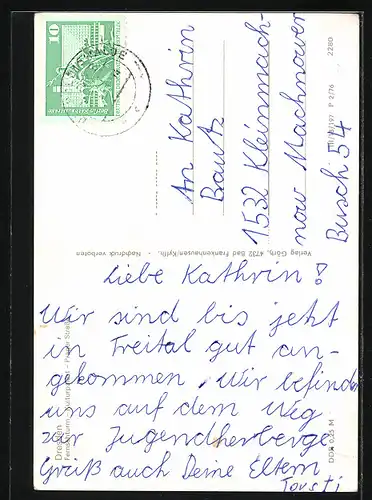 10
An Kathrin
Bautz
1532 Kleinmach-
now Machnower
Busch 54
Liebe Kathrin!
Wir sind bis jetzt
in Freital gut an-
gekommen. Wir befinden
uns auf dem Weg
zur Jugendherberge
Grüß auch Deine Eltern
Torsti
Dresden
Verlag Görb, 4732 Bad Frankenhausen/Kyffh. - Nachdruck verboten
P 2/76 2280
DDR 0,25 M